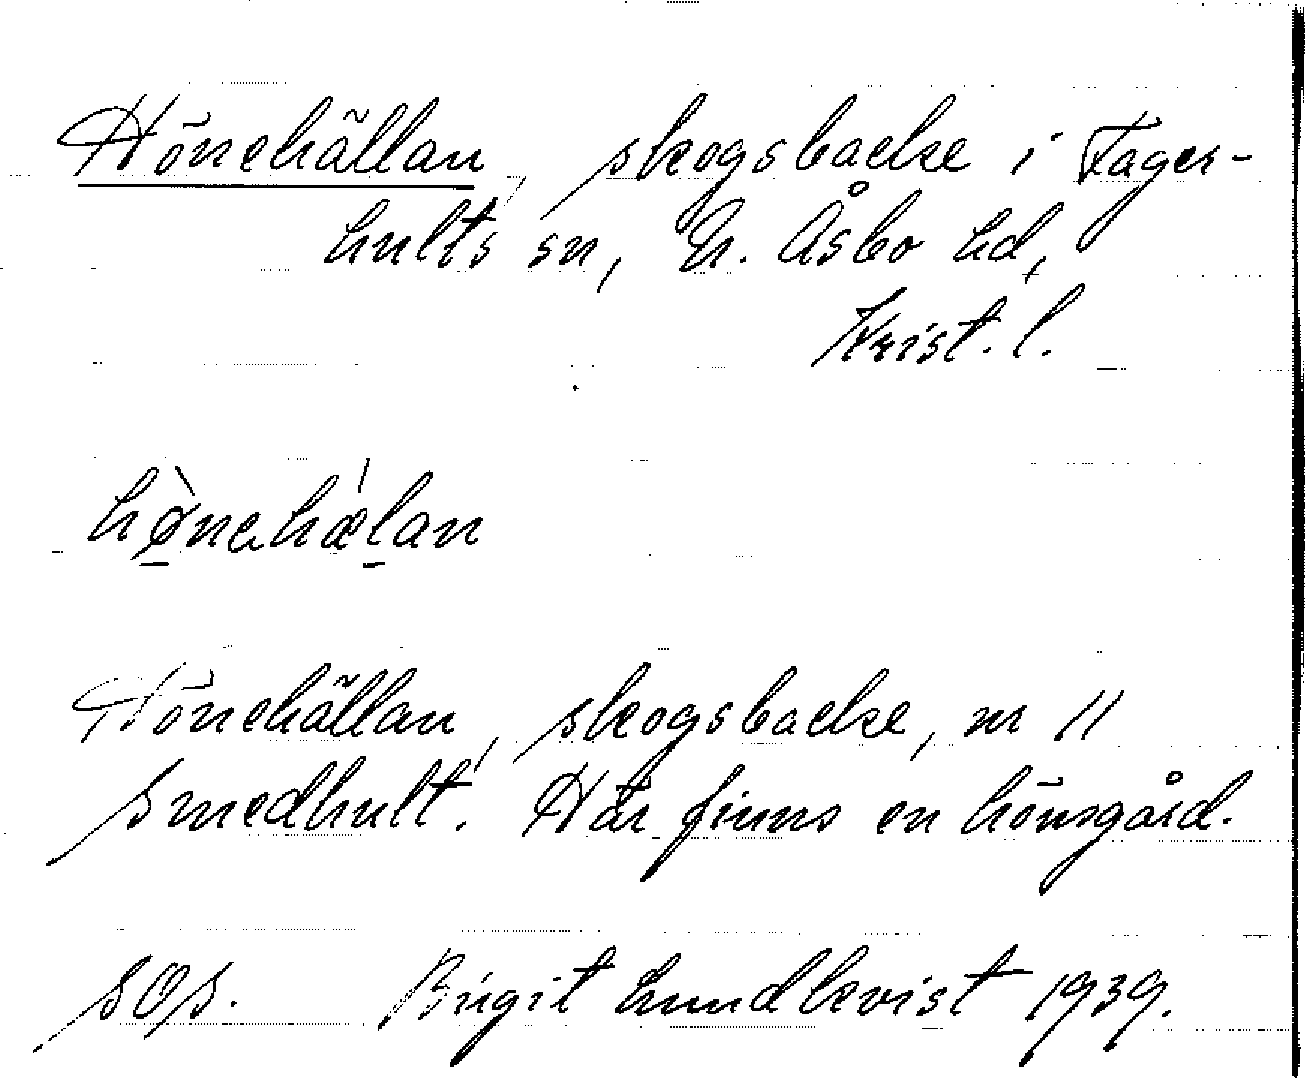 Hönehällan, skogsbacke i Fager-
hults sn, N. Åsbo hd,
Krist. l.
Hönehällan, skogsbacke, nr 11
Smedhult. Här finns en hönsgård.
SOS. Birgit Lundkvist 1939.